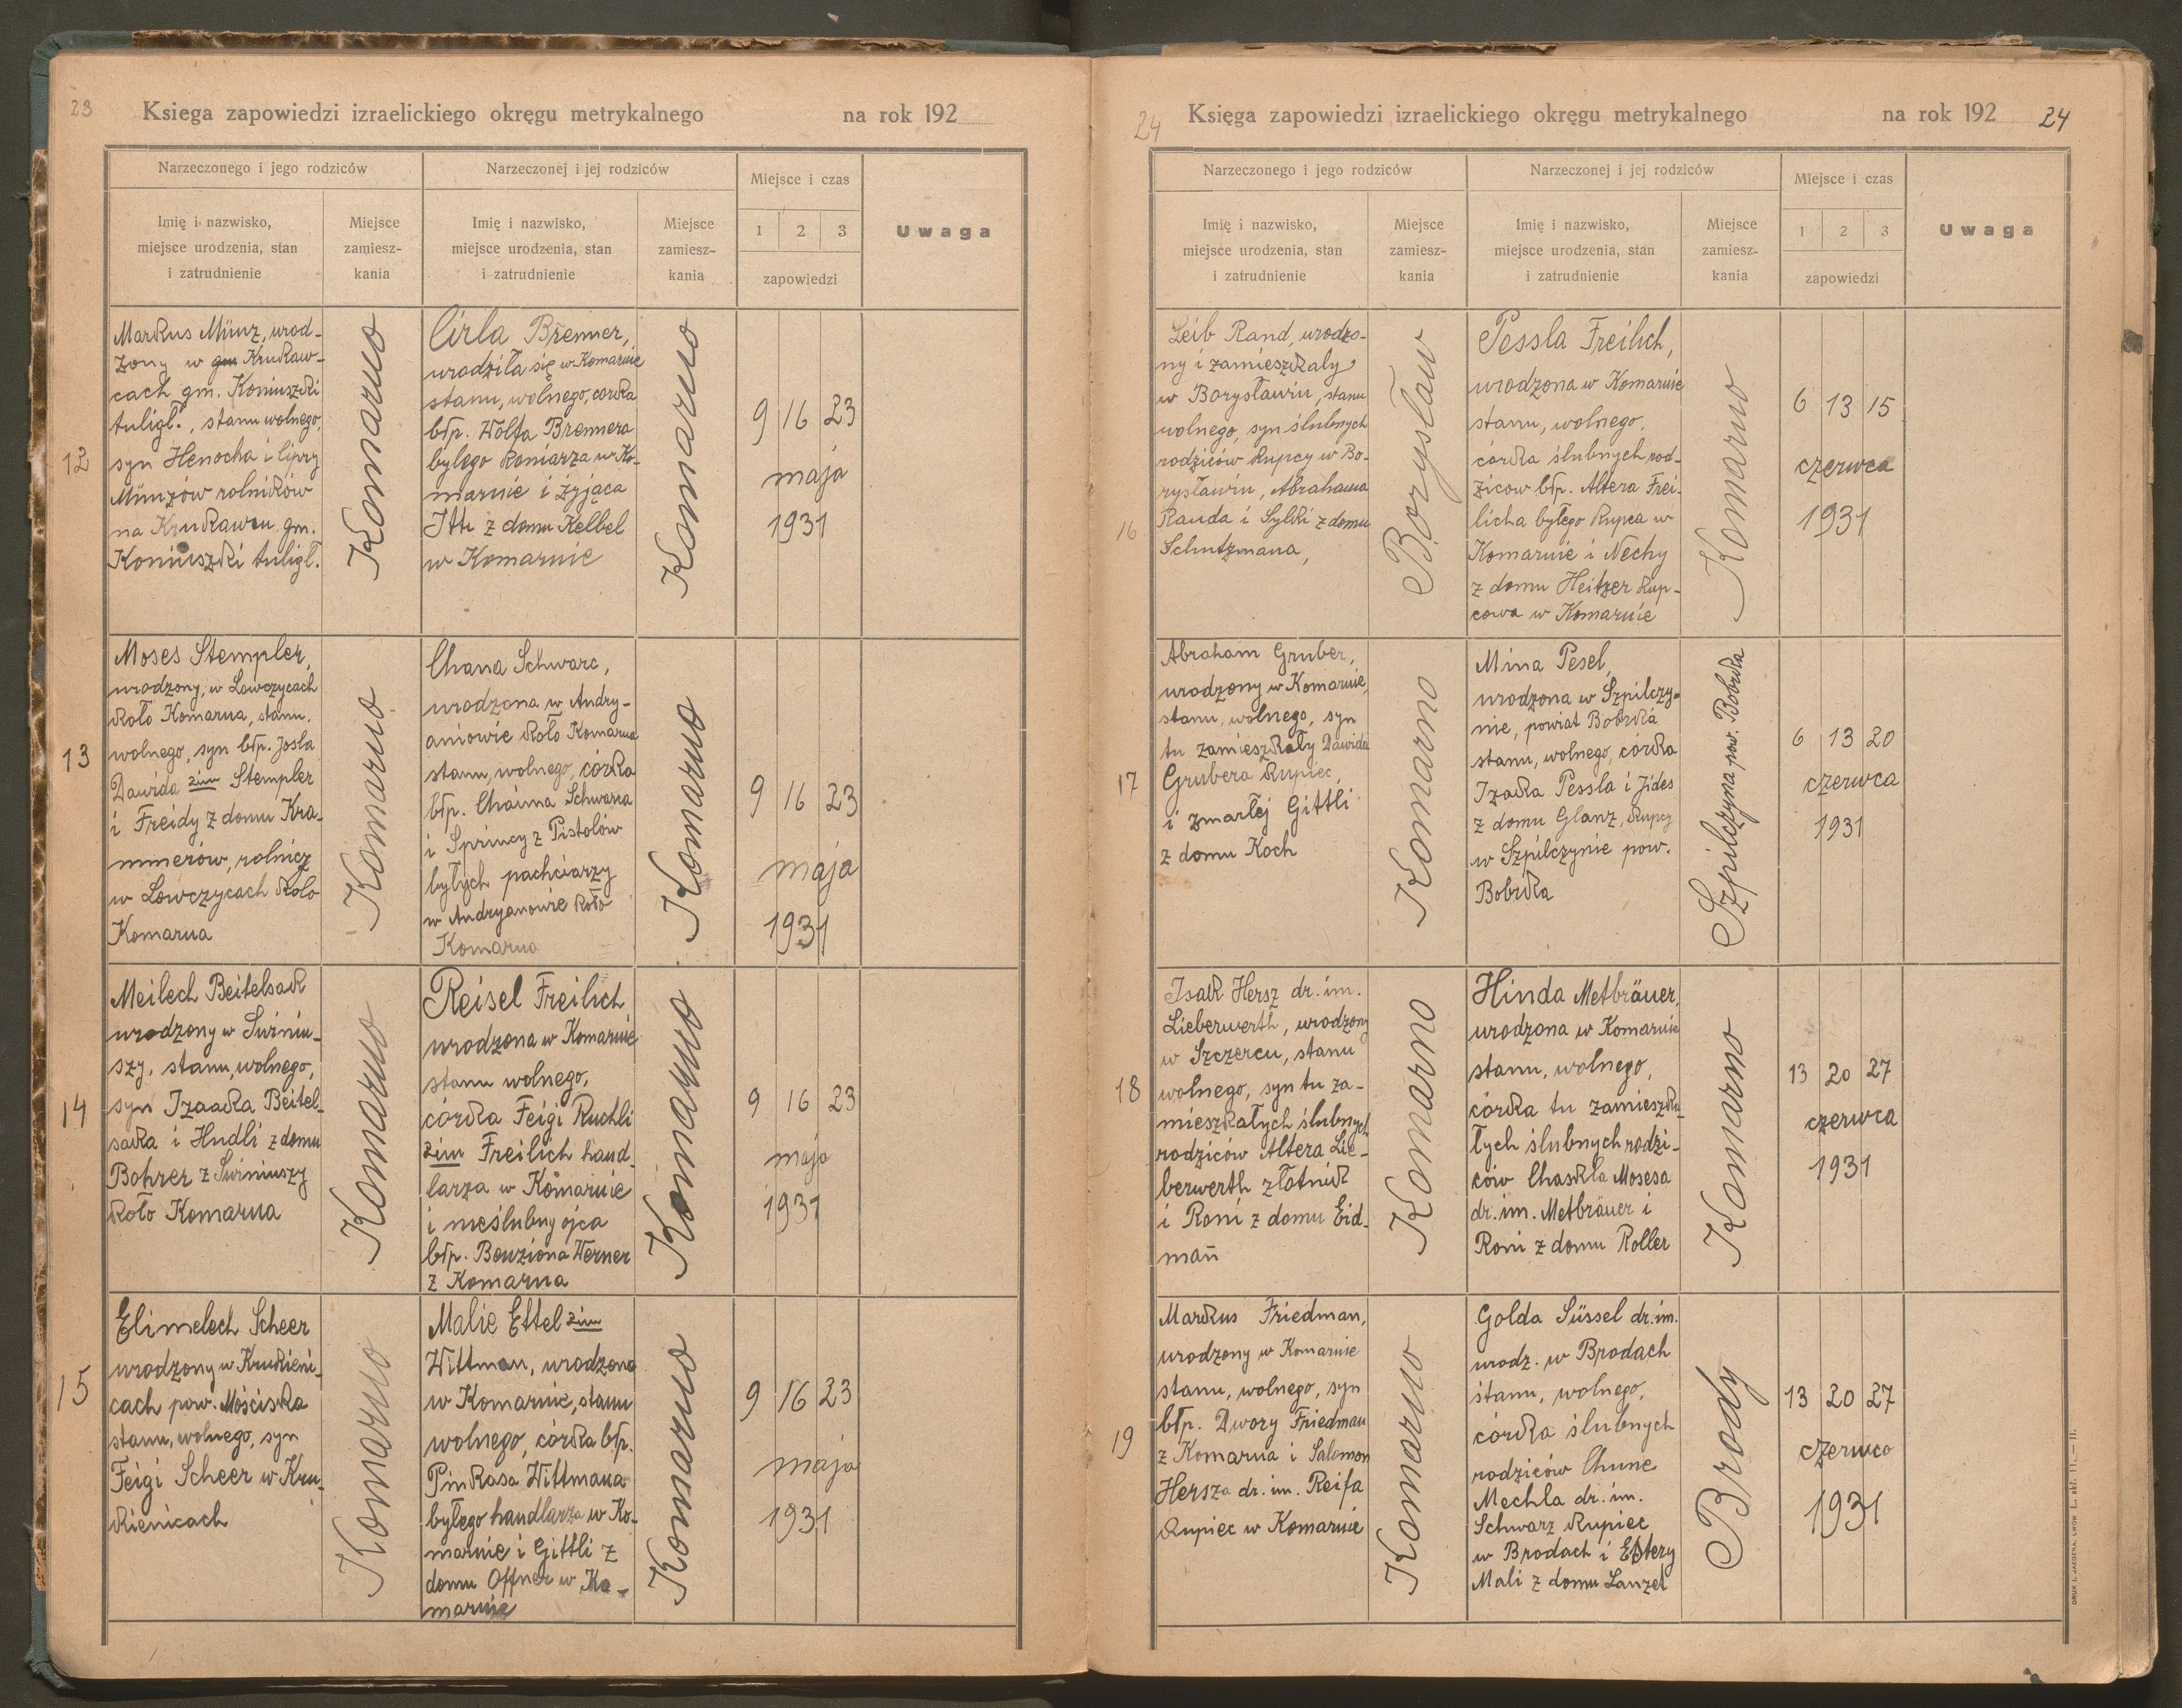 23
Ksiega zapowiedzi izraelickiego okręgu metrykalnego na rok 192
Narzeczonego i jego rodziców
Narzeczonej i jej rodziców
Miejsce i czas
Uwaga
Imię i nazwisko,
miejsce urodzenia, stan
i zatrudnienie
Miejsce
zamiesz-
kania
Imię i nazwisko,
miejsce urodzenia, stan
i zatrudnienie
Miejsce
zamiesz-
kania
1 2 3
zapowiedzi
12
Markus Münz, urod-
zony w gm Krukaw-
cach gm. Koniuszki
tuligł., stanu wolnego,
syn Henocha i Cipry
Münzów rolników
na Krukawcu, gm.
Koniuszki tuligł.
Komarno
Cirla Brenner,
urodziła się w Komarnie
stanu, wolnego, corka
błp. Wolfa Brennera
bylego koniarza w Ko-
marnie i żyjąca
Itti z domu Kelbel
w Komarnie
Komarno
9 16 23
maja
1931
13
Moses Stempler,
urodzony, w Lowczycach
koło Komarna, stanu,
wolnego, syn błp. Josla
Dawida zim Stempler
i Freidy z domu Kra-
mmerów, rolnicz
w Lowczycach kolo
Komarna
Komarno
Chana Schwarc,
urodzona w Andry-
anowie koło Komarna
stanu, wolnego, córka
błp. Chaima Schwarca
i Sprincy z Pistolów
byłych pachciarzy
w Andryanowie koło
Komarno
Komarno
9 16 23
maja
1931
14
Meilech Beitelsak
urodzony w Suśniu-
szy, stanu, wolnego,
syn Izaaka Beitel-
saka i Hudli z domu
Bohrer z Suśniuszy
koło Komarna
Komarno
Reisel Freilich
urodzona w Komarnie
stanu wolnego,
córka Feigi Ruchli
zim Freilich hand-
larza w Komarnie
i nieślubny ojca
błp. Benziona Werner
z Komarna
Komarno
9 16 23
maja
1931
15
Elimelech Scheer
urodzony w Krukieni-
cach pow. Mościska
stanu, wolnego, syn
Feigi Scheer w Kru-
kienicach
Komarno
Malie Ettel zim
Wittman, urodzona
w Komarnie, stanu
wolnego, córka błp.
Pinkasa Wittmana
byłego handlarza w Ko-
marnie i Gittli z
domu Offner w Ko-
marnie
Komarno
9 16 23
maja
1931
24
Księga zapowiedzi izraelickiego okręgu metrykalnego na rok 192 24
Narzeczonego i jego rodziców
Narzeczonej i jej rodziców
Miejsce i czas
Uwaga
Imię i nazwisko,
miejsce urodzenia, stan
i zatrudnienie
Miejsce
zamiesz-
kania
Imię i nazwisko,
miejsce urodzenia, stan
i zatrudnienie
Miejsce
zamiesz-
kania
1 2 3
zapowiedzi
16
Leib Rand, urodzo-
ny i zamieszkały
w Borysławiu, stanu
wolnego, syn ślubnych
rodziców kupcy w Bo-
rysławiu, Abrahama
Randa i Sylki z domu
Schutzmana,
Borysław
Pessla Freilich,
urodzona w Komarnie
stanu, wolnego,
córka ślubnych rod-
zicow błp. Altera Frei-
licha byłego kupca w
Komarnie i Nechy
z domu Heitzer kup-
cowa w Komarnie
Komarno
6 13 15
czerwca
1931
17
Abraham Gruber,
urodzony w Komarnie,
stanu, wolnego, syn
tu zamieszkały Dawida
Grubera kupiec,
i zmarłej Gittli
z domu Koch
Komarno
Mina Pesel,
urodzona w Szpilczy-
nie, powiat Bobrka
stanu, wolnego, córka
Izaka Pessla i Jides
z domu Glanz, kupcy
w Szpilczynie pow.
Bobrka
Szpilczyna pow. Bobrka
6 13 20
czerwca
1931
18
Isak Hersz dr. im.
Lieberwerth, urodzony
w Szczercu, stanu
wolnego, syn tu za-
mieszkałych ślubnych
rodziców Altera Lie-
berwerth złotnik
i Roni z domu Eid-
man̄
Komarno
Hinda Metbräuer,
urodzona w Komarnie
stanu, wolnego,
córka tu zamieszka-
łych ślubnych rodzi-
ców Chaskla Mosesa
dr. im. Metbräuer i
Roni z domu Roller
Komarno
13 20 27
czerwca
1931
19
Markus Friedman,
urodzony w Komarnie
stanu, wolnego, syn
błp. Dwory Friedman
z Komarna i Salomon
Hersza dr. im. Reifa
kupiec w Komarnie
Komarno
Golda Süssel dr. im.
urodz. w Brodach
stanu, wolnego,
córka ślubnych
rodziców Chune
Mechla dr. im.
Schwarz kupiec
w Brodach i Estery
Mali z domu Lanzet
Brody
13 20 27
czerwca
1931